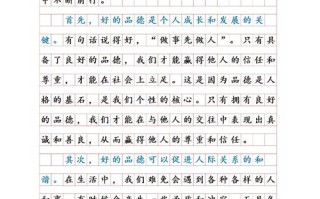 中不断前行。
首先，好的品德是个人成长和发展的关
键。有句话说得好，“做事先做人”。只有具
备了良好的品德，我们才能赢得他人的信任和
尊重，才能在社会上立足。这是因为品德是人
格的基石，是我们个性的核心。只有拥有良好
的品德，我们才能在与他人的交往中表现出真
诚和善良，从而赢得他人的尊重和信任。
其次，好的品德可以促进人际关系的和
谐。在生活中，我们难免会遇到各种各样的人